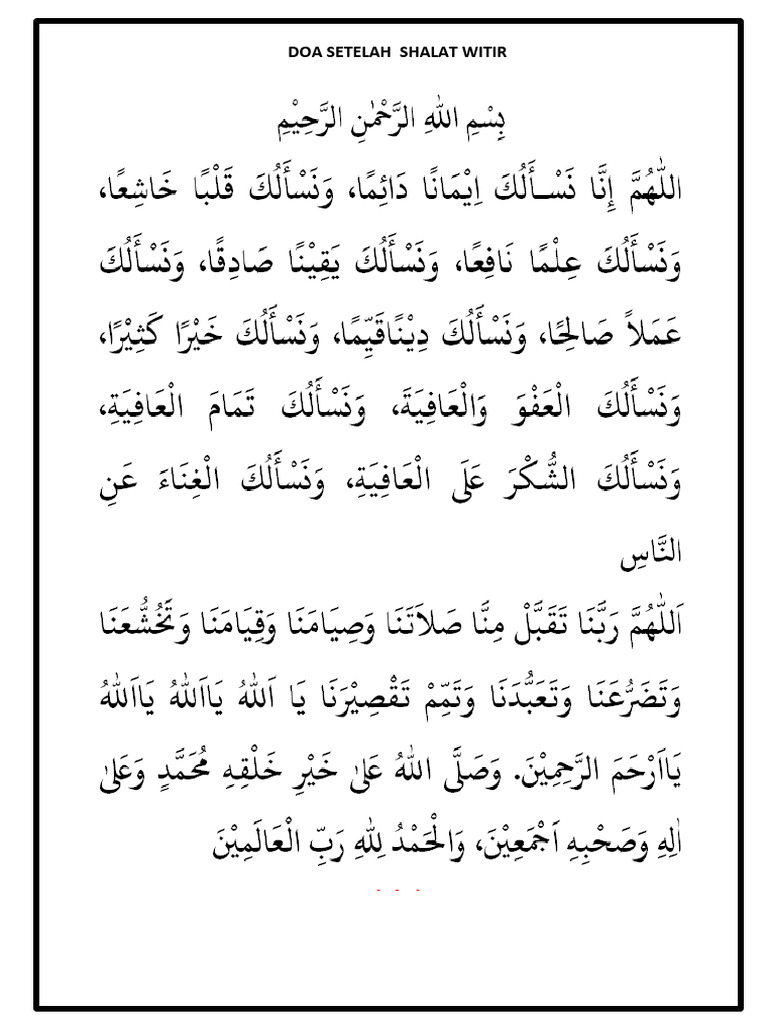 DOA SETELAH  SHALAT WITIR
بِسْمِ اللهِ الرَّحْمٰنِ الرَّحِيْمِ
اللّٰهُمَّ إِنَّا نَسْـأَلُكَ اِيْمَانًا دَائِمًا، وَنَسْأَلُكَ قَلْبًا خَاشِعًا،
وَنَسْأَلُكَ عِلْمًا نَافِعًا، وَنَسْأَلُكَ يَقِيْنًا صَادِقًا، وَنَسْأَلُكَ
عَمَلاً صَالِحًا، وَنَسْأَلُكَ دِيْنًاقَيِّمًا، وَنَسْأَلُكَ خَيْرًا كَثِيْرًا،
وَنَسْأَلُكَ الْعَفْوَ وَالْعَافِيَةَ، وَنَسْأَلُكَ تَمَامَ الْعَافِيَةِ،
وَنَسْأَلُكَ الشُّكْرَ عَلَى الْعَافِيَةِ، وَنَسْأَلُكَ الْغِنَاءَ عَنِ
النَّاسِ
اَللّٰهُمَّ رَبَّنَا تَقَبَّلْ مِنَّا صَلاَتَنَا وَصِيَامَنَا وَقِيَامَنَا وَتَخُشُّعَنَا
وَتَضَرُّعَنَا وَتَعَبُّدَنَا وَتَمِّمْ تَقْصِيْرَنَا يَا اَللهُ يَااَللهُ يَااَللهُ
يَااَرْحَمَ الرَّحِمِيْنَ. وَصَلَّى اللهُ عَلىٰ خَيْرِ خَلْقِهِ مُحَمَّدٍ وَعَلىٰ
اٰلِهِ وَصَحْبِهِ اَجْمَعِيْنَ، وَالْحَمْدُ لِلّٰهِ رَبِّ الْعَالَمِيْنَ